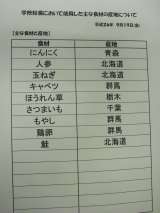 学校給食において使用した主な食材の産地について
平成26年 9月19日(金)
(主な食材の産地)
食材 産地
にんにく 青森
人参 北海道
玉ねぎ 北海道
キャベツ 群馬
ほうれん草 栃木
さつまいも 千葉
もやし 群馬
鶏卵 群馬
鮭 北海道